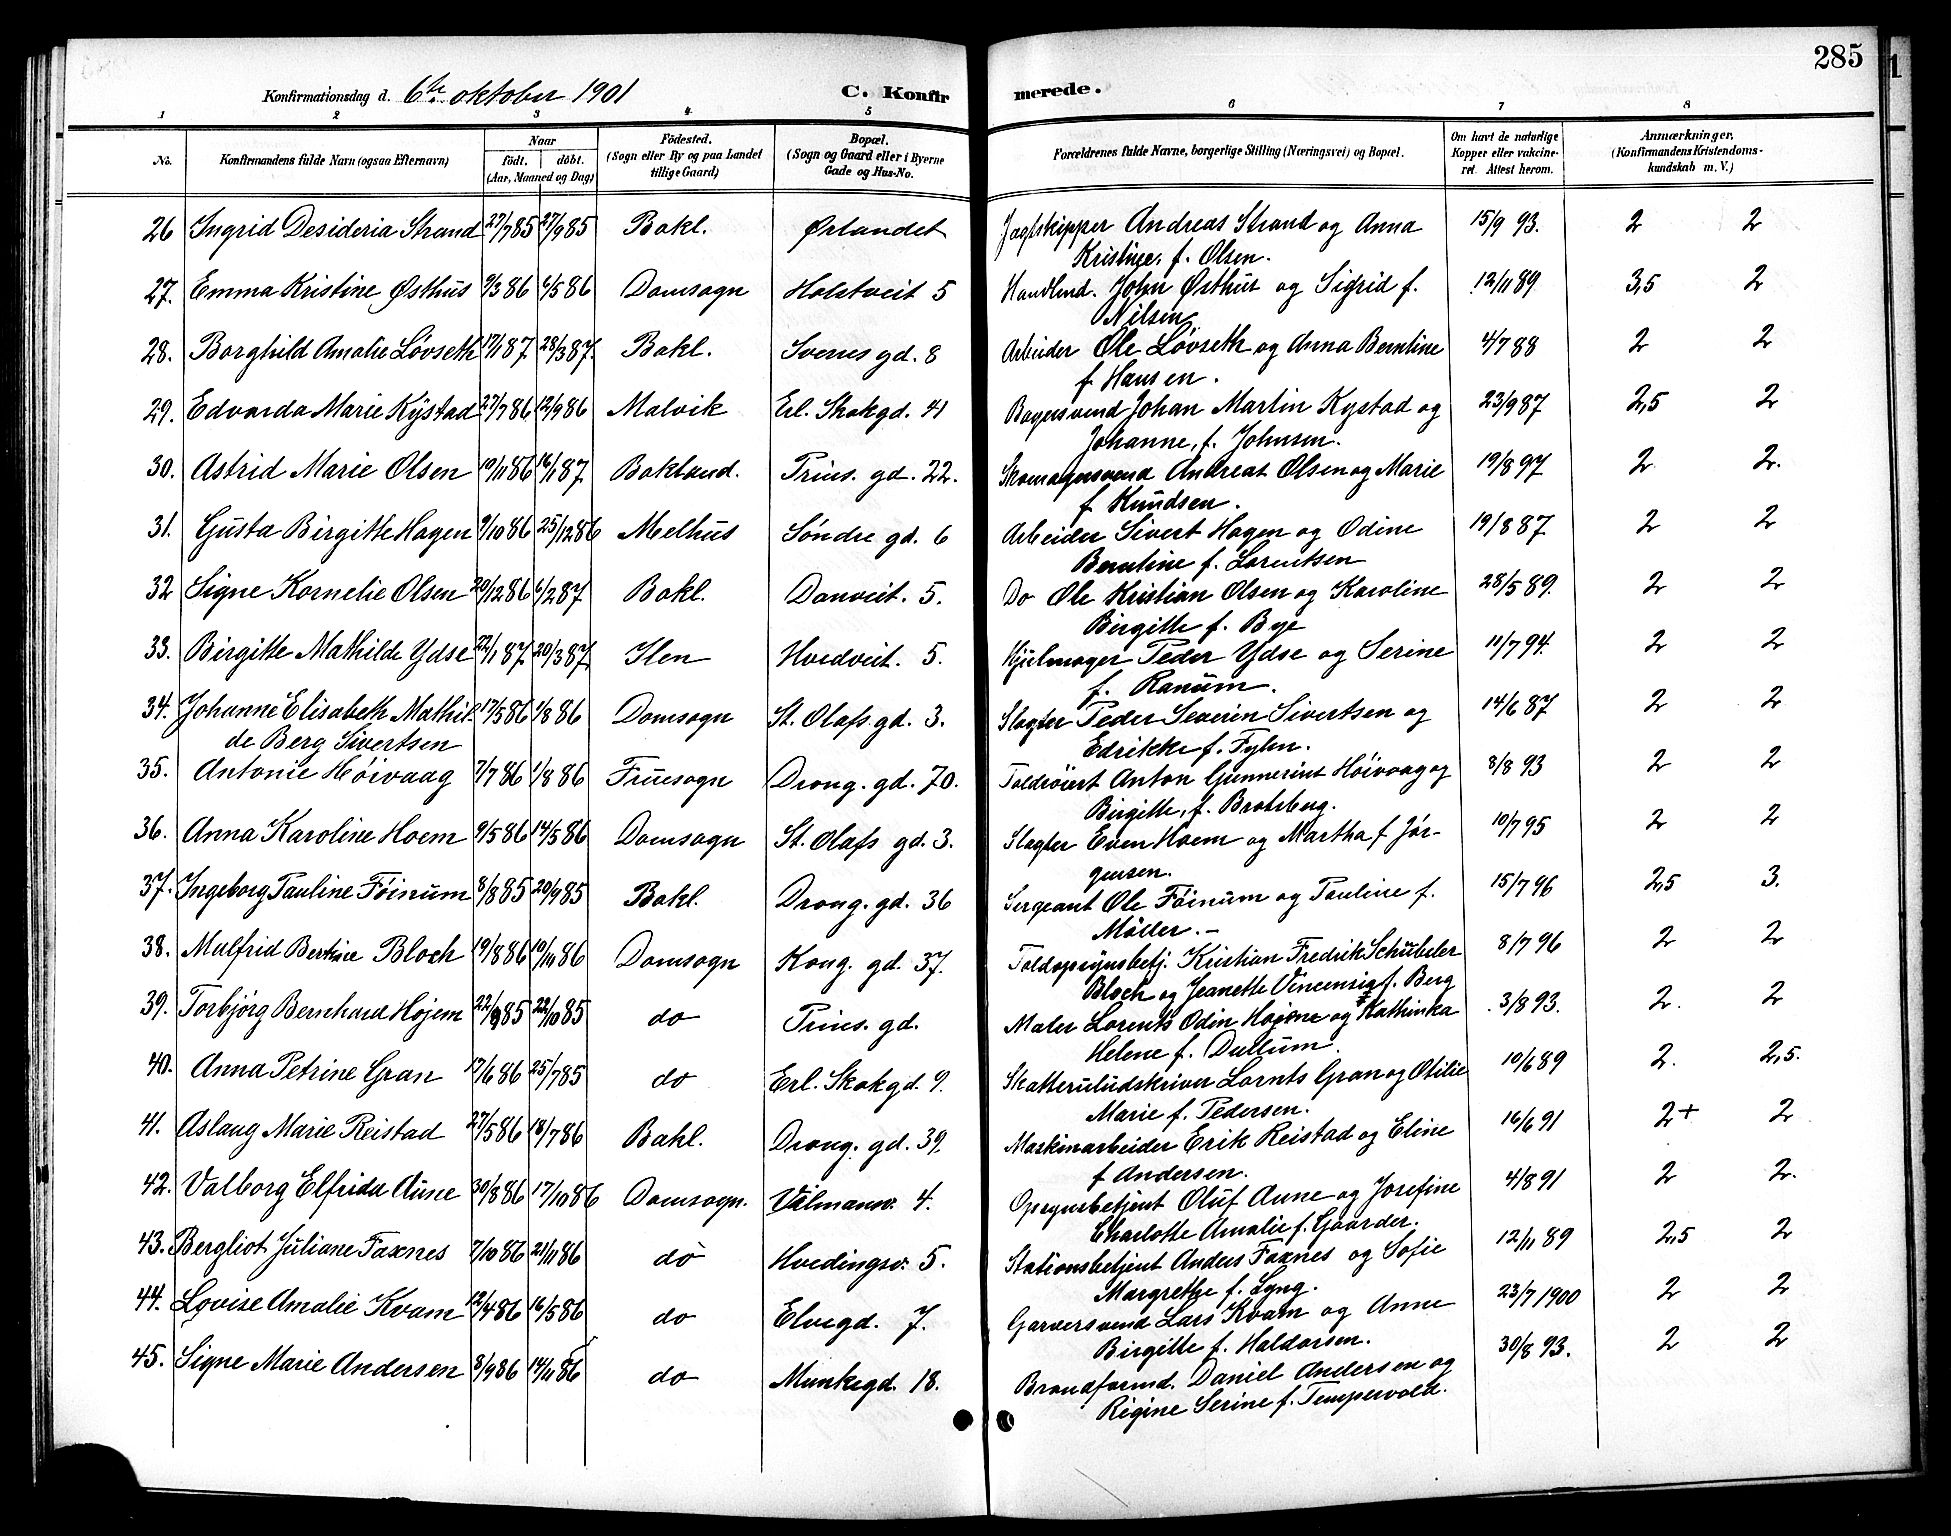 285
Konfirmationsdag d. 6te oktober 1901 C. Konfirmerede.
1 2 3 4 5 6 7 8
No. Konfirmandens fulde Navn (ogsaa Efternavn) Naar födt. döbt. (Aar, Maaned og Dag) Födested. (Sogn eller By og paa Landet tillige Gaard) Bopæl. (Sogn og Gaard eller i Byerne Gade og Hus-No. Forældrenes fulde Navne, borgerlige Stilling (Næringsvei) og Bopæl. Om havt de naturlige Kopper eller vakcineret. Attest herom. Anmærkninger. (Konfirmandens Kristendomskundskab m. V.)
26 Ingrid Desideria Strand 27/7 85 27/9 85 Bakl. Ørlandet Jagtskipper Andreas Strand og Anna 15/9 93. 2 2
Kristine, f. Olsen.
27. Emma Kristine Østhus 9/3 86 6/5 86 Domsogn Holstveit 5 Handlend. John Østhus og Sigrid f. 12/11 89 3,5 2
Nilsen
28. Borghild Amalie Løvseth 17/1 87 28/3 87. Bakl. Sverres gd. 8 Arbeider Ole Løvseth og Anna Berntine 4/7 88 2 2
f Hansen.
29. Edvarda Marie Kystad 27/7 86 12/9 86 Malvik Erl. Skakgd. 41 Bagersvend Johan Martin Kystad og 23/9 87 2,5 2
Johanne, f. Johnsen.
30. Astrid Marie Olsen 10/11 86 16/1 87 Bakland. Prins. gd. 22. Skomagersvend Andreas Olsen og Marie 19/8 97 2 2.
f Knudsen.
31. Gusta Birgitte Hagen 9/10 86 25/12 86 Melhus Søndre gd. 6 Arbeider Sivert Hagen og Odine 19/8 87 2 2
Berntine f. Lorentsen
32 Signe Kornelie Olsen 20/12 86 6/2 87 Bakl. Danveit. 5. Do Ole Kristian Olsen og Karoline 28/5 89. 2 2
Birgitte f. Bye
33. Birgitte Mathilde Ydse 22/1 87 20/3 87 Ilen Hvedveit. 5. Hjulmager Peder Ydse og Serine 11/7 94. 2 2
f. Ranum.
34. Johanne Elisabeth Mathil- 17/5 86 1/8 86 Domsogn St. Olafs gd. 3. Slagter Peder Severin Sivertsen og 14/6 87 2 2
de Berg Sivertsen Edrikke f. Fylen.
35. Antonie Høivaag 7/7 86 1/8 86 Fruesogn Drong. gd. 70. Toldrøiert Anton Gunnerius Høivaag og 8/8 93 2 2
Birgitte, f. Bratsberg.
36. Anna Karoline Hoem 9/5 86 14/5 86 Domsogn St. Olafs gd. 3. Slagter Even Hoem og Martha f Jør- 10/7 95 2 2
gensen.
37. Ingeborg Pauline Føinum 8/8 85 20/9 85 Bakl. Drong. gd. 36 Sergeant Ole Føinum og Pauline f. 15/7 96 2,5 3.
Møller.
38. Malfrid Bertine Bloch 19/8 86 10/11 86 Domsogn Kong. gd. 37. Toldopsynsbetj. Kristian Fredrik Schübeler 8/7 96 2 2
Bloch og Jeanette Vincensia f. Berg
39. Torbjørg Bernhard Højem 22/9 85 22/10 85 do Prins. gd. Maler Lorents Odin Højem og Kathinka 3/8 93. 2. 2
Helene f. Dullum
40. Anna Petrine Gran 17/6 86 25/7 85 do Erl. Skakgd. 9. Lornts Gran og Otilie 10/6 89 2. 2,5.
Marie f. Pedersen.
41. Aslaug Marie Reistad 27/5 86 18/7 86 Bakl. Drong. gd. 39. Maskinarbeider Erik Reistad og Eline 16/6 91 2+ 2
f Andersen.
42. Valborg Elfrida Aune 30/8 86 17/10 86 Domsogn. Vålmansv. 4. Opsynsbetjent Oluf Aune og Josefine 4/8 91 2 2.
Charlotte Amalie f. Gaarder.
43. Bergliot Juliane Faxnes 7/10 86 21/11 86 do Hvedingsv. 5. Stationsbetjent Anders Faxnes og Sofie 12/11 89 2,5 2
Margrethe f. Lyng.
44. Lovise Amalie Kvam 12/4 86 16/5 86 do Elvegd. 7. Garversvend Lars Kvam og Anne 23/7 1900 2 2
Birgitte f. Haldorsen.
45. Signe Marie Andersen 8/9 86 14/11 86 do Munkegd. 18. Brandformd. Daniel Andersen og 30/8 93. 2 2
Regine Serine f. Tempervold.